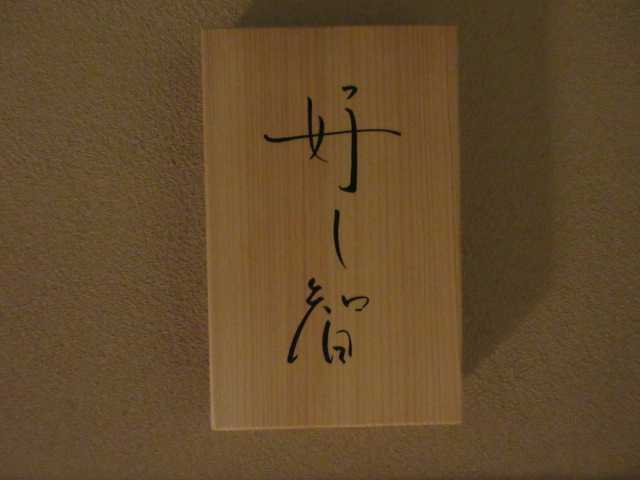 好し智